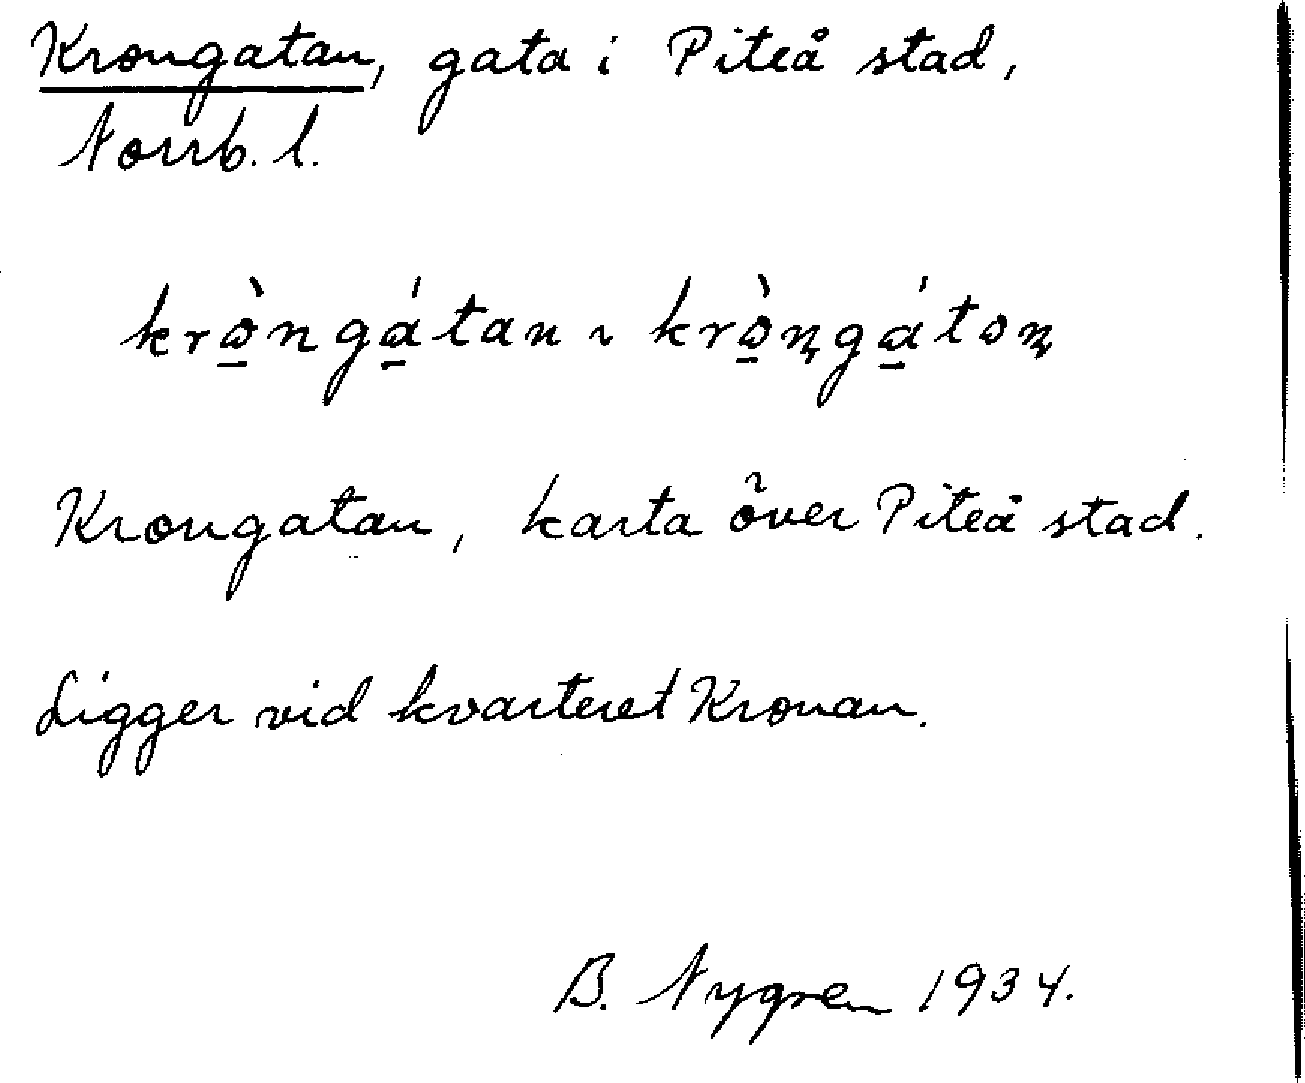 Krongatan, gata i Piteå stad,
Norrb. l.
krò̱ngá̱tan ~ krò̱ŋgá̱toŋ
Krongatan, karta över Piteå stad.
Ligger vid kvarteret Kronan.
B. Nygren 1934.